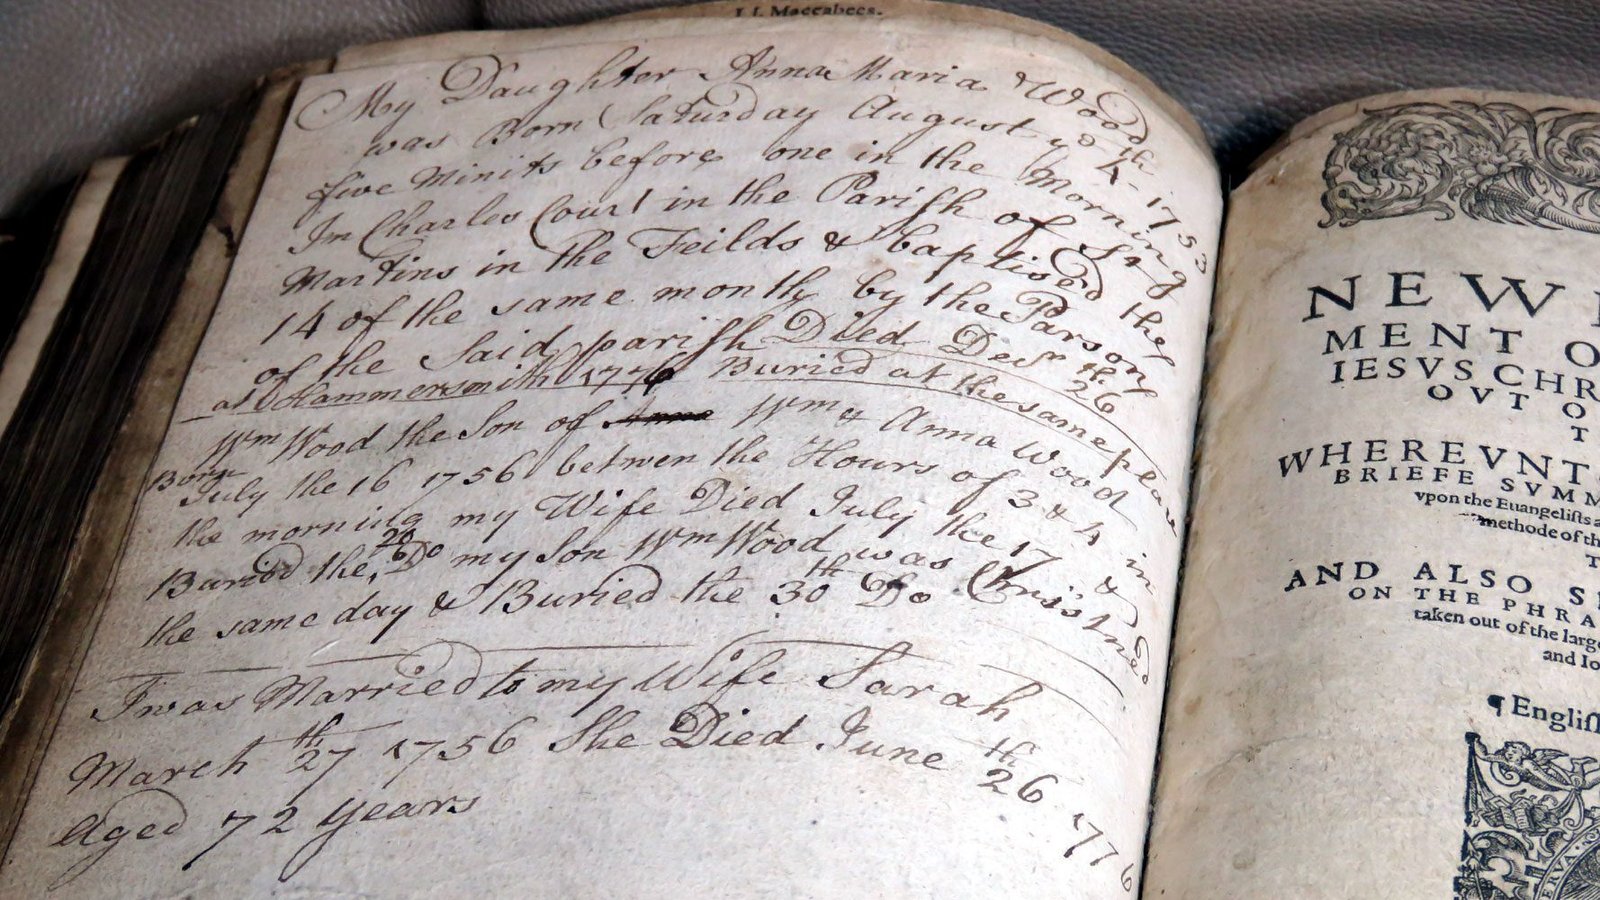 II. Maccabees.
My Daughter Anna Maria Wood
was Born Saturday August ye 4th - 1753
five Minits before one in the Morning
In Charles Court in the Parish of St
Martins in the Feilds & baptised the
14 of the same month by the Parson
of the Said parish Died Decr 26th
at Hammersmith 1776 Buried at the same place
Wm Wood the Son of Wm & Anna Wood
Born July the 16 1756 betwen the Hours of 3 & 4 in
the morning my Wife Died July the 17 &
Buried the 20 Do my Son Wm Wood was Christned
the same day & Buried the 30th Do
I was Married to my Wife Sarah
March 27th 1756 She Died June 26th 1776
Aged 72 Years
NEW
MENT O
IESVS CHR
OVT O
T
WHEREVNT
BRIEFE SVMM
vpon the Euangelists a
methode of th
T
AND ALSO S
ON THE PHRA
taken out of the large
and Io
¶ Englis